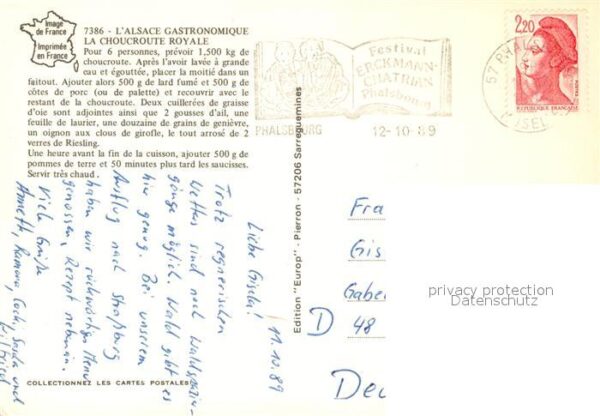 Image
de France
Imprimée
en France
7386 - L'ALSACE GASTRONOMIQUE
LA CHOUCROUTE ROYALE
Pour 6 personnes, prévoir 1,500 kg de
choucroute. Après l'avoir lavée à grande
eau et égouttée, placer la moitié dans un
faitout. Ajouter alors 500 g de lard fumé et 500 g de
côtes de porc (ou de palette) et recouvrir avec le
restant de la choucroute. Deux cuillerées de graisse
d'oie sont adjointes ainsi que 2 gousses d'ail, une
feuille de laurier, une douzaine de grains de genièvre,
un oignon aux clous de girofle, le tout arrosé de 2
verres de Riesling.
Une heure avant la fin de la cuisson, ajouter 500 g de
pommes de terre et 50 minutes plus tard les saucisses.
Servir très chaud.
Festival
ERCKMANN-
CHATRIAN
Phalsbourg
PHALSBOURG
12-10-89
57 PHALS
MOSEL
2,20
REPUBLIQUE FRANÇAISE
Edition "Europ" - Pierron - 57206 Sarreguemines
11.10.89
Liebe Gisela!
Trotz regnerischen
Wetters sind noch Waldspazier-
gänge möglich. Wald gibt es
hier genug. Bei unserem
Ausflug nach Straßburg
haben wir rückwärtiges Menu
genossen, Rezept nebenan.
Viele Grüße
Annette, Ramona, und
Wilfried
Fra
Gis
Gabe
D 48
Deu
privacy protection
Datenschutz
COLLECTIONNEZ LES CARTES POSTALES